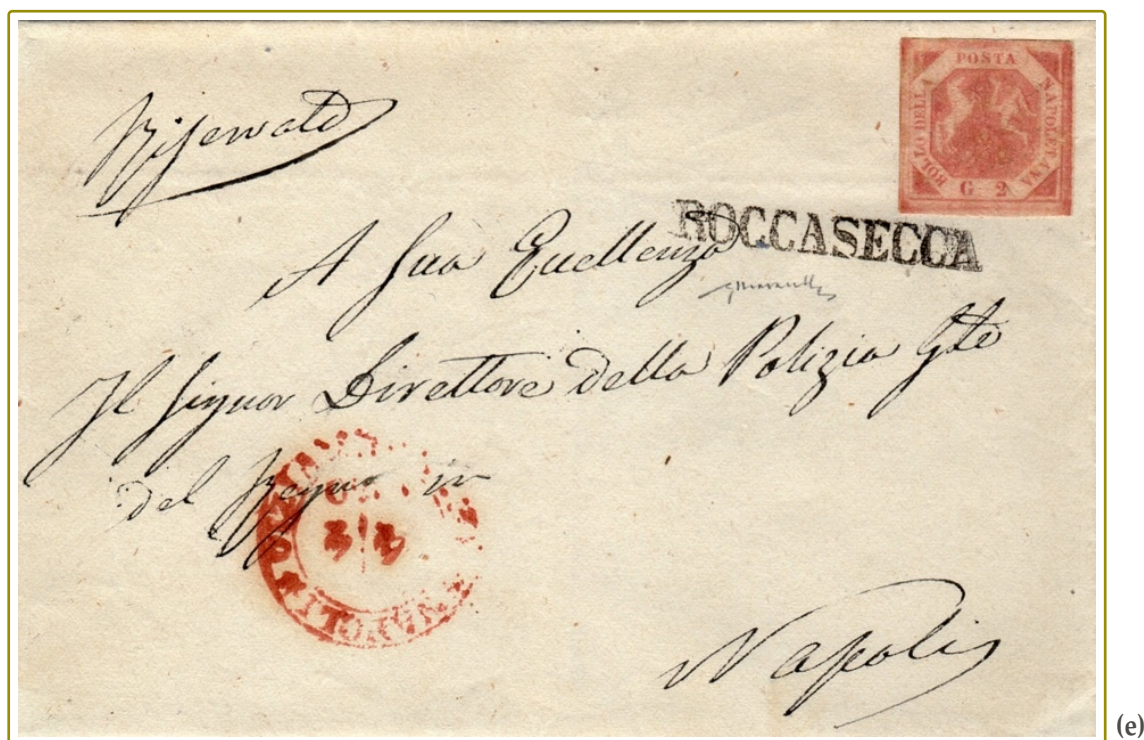 POSTA
BOLLO DELLA
NAPOLETANA
G. 2
ROCCASECCA
A Sua Eccellenza
Il Signor Direttore della Polizia Gle
del Regno in
Napoli
(e)